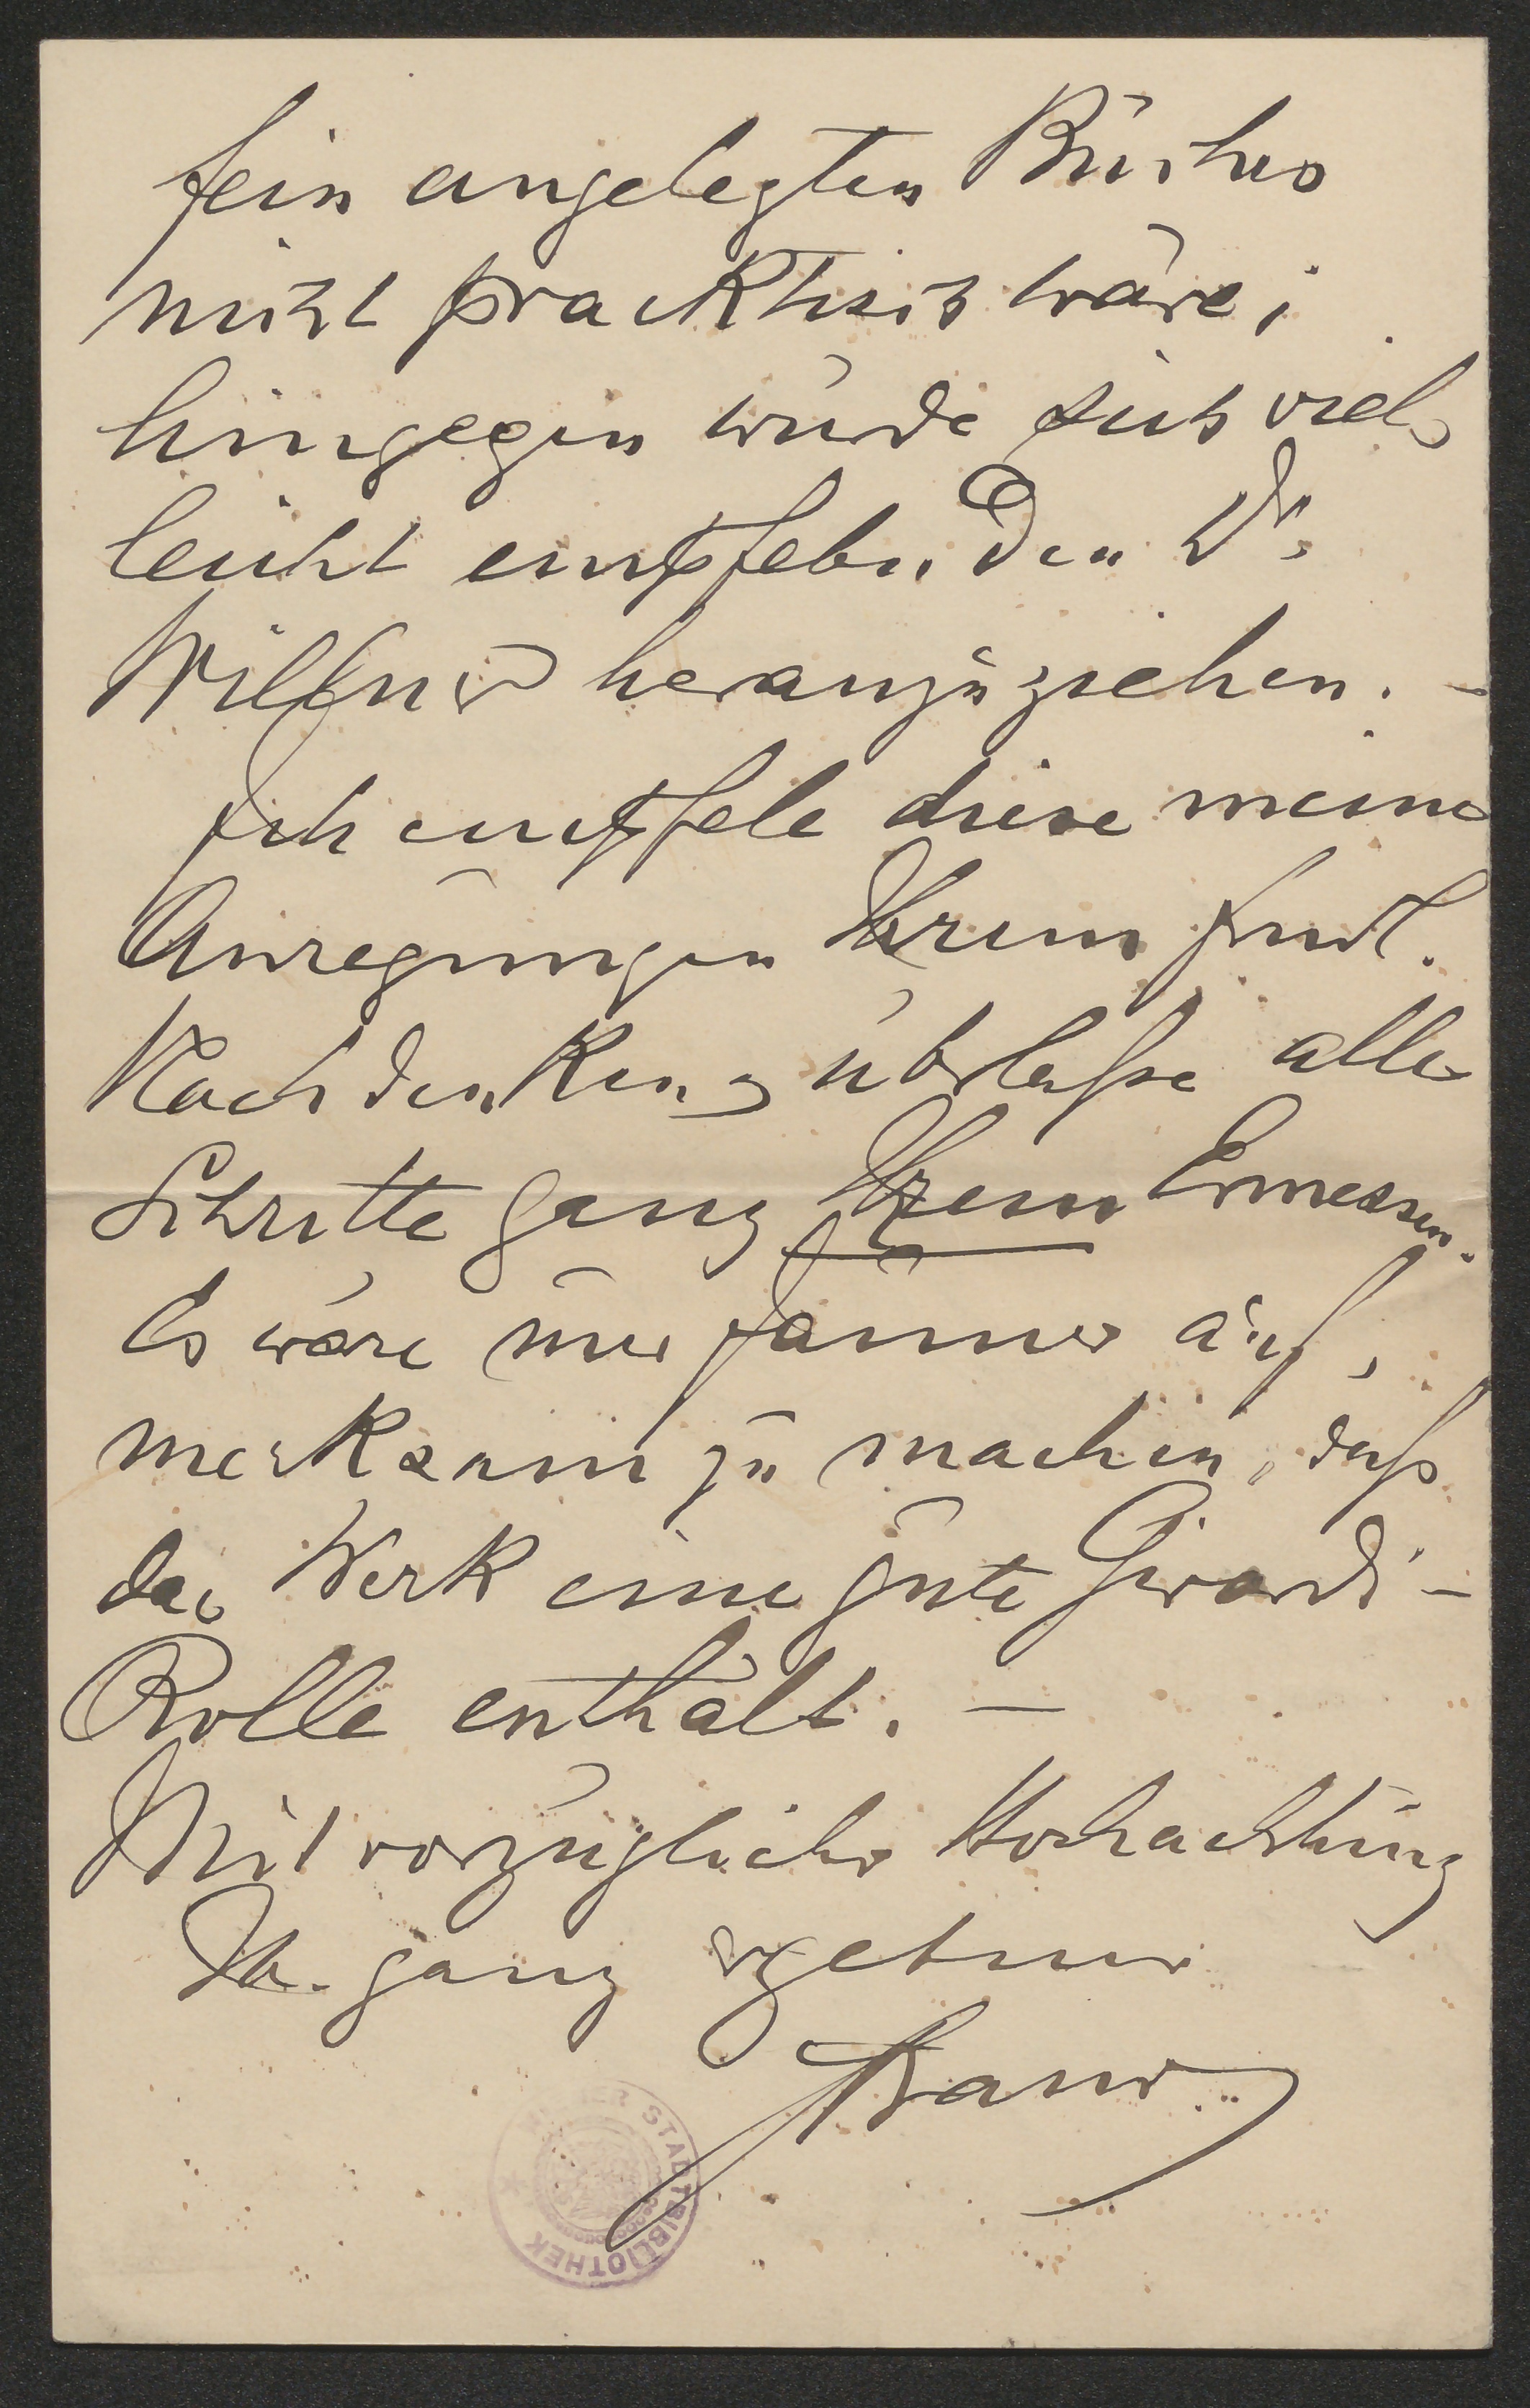 fein angelegten Buches
nicht pracktisch wäre;
hingegen würde sich viel-
leicht empfehn. den Dr.
Willner heranzuziehen. -
Ich empfele diese meine
Anregungen Ihrem frndl.
Nachdenken, überlasse alle
Schritte ganz Ihrem Ermessen.
Es wäre nur Jauner auf-
merksam zu machen, dass
das Werk eine gute Girardi-
Rolle enthält. -
Mit vorzüglicher Hochachtung
Ihr ganz ergebener
WIENER STADTBIBLIOTHEK